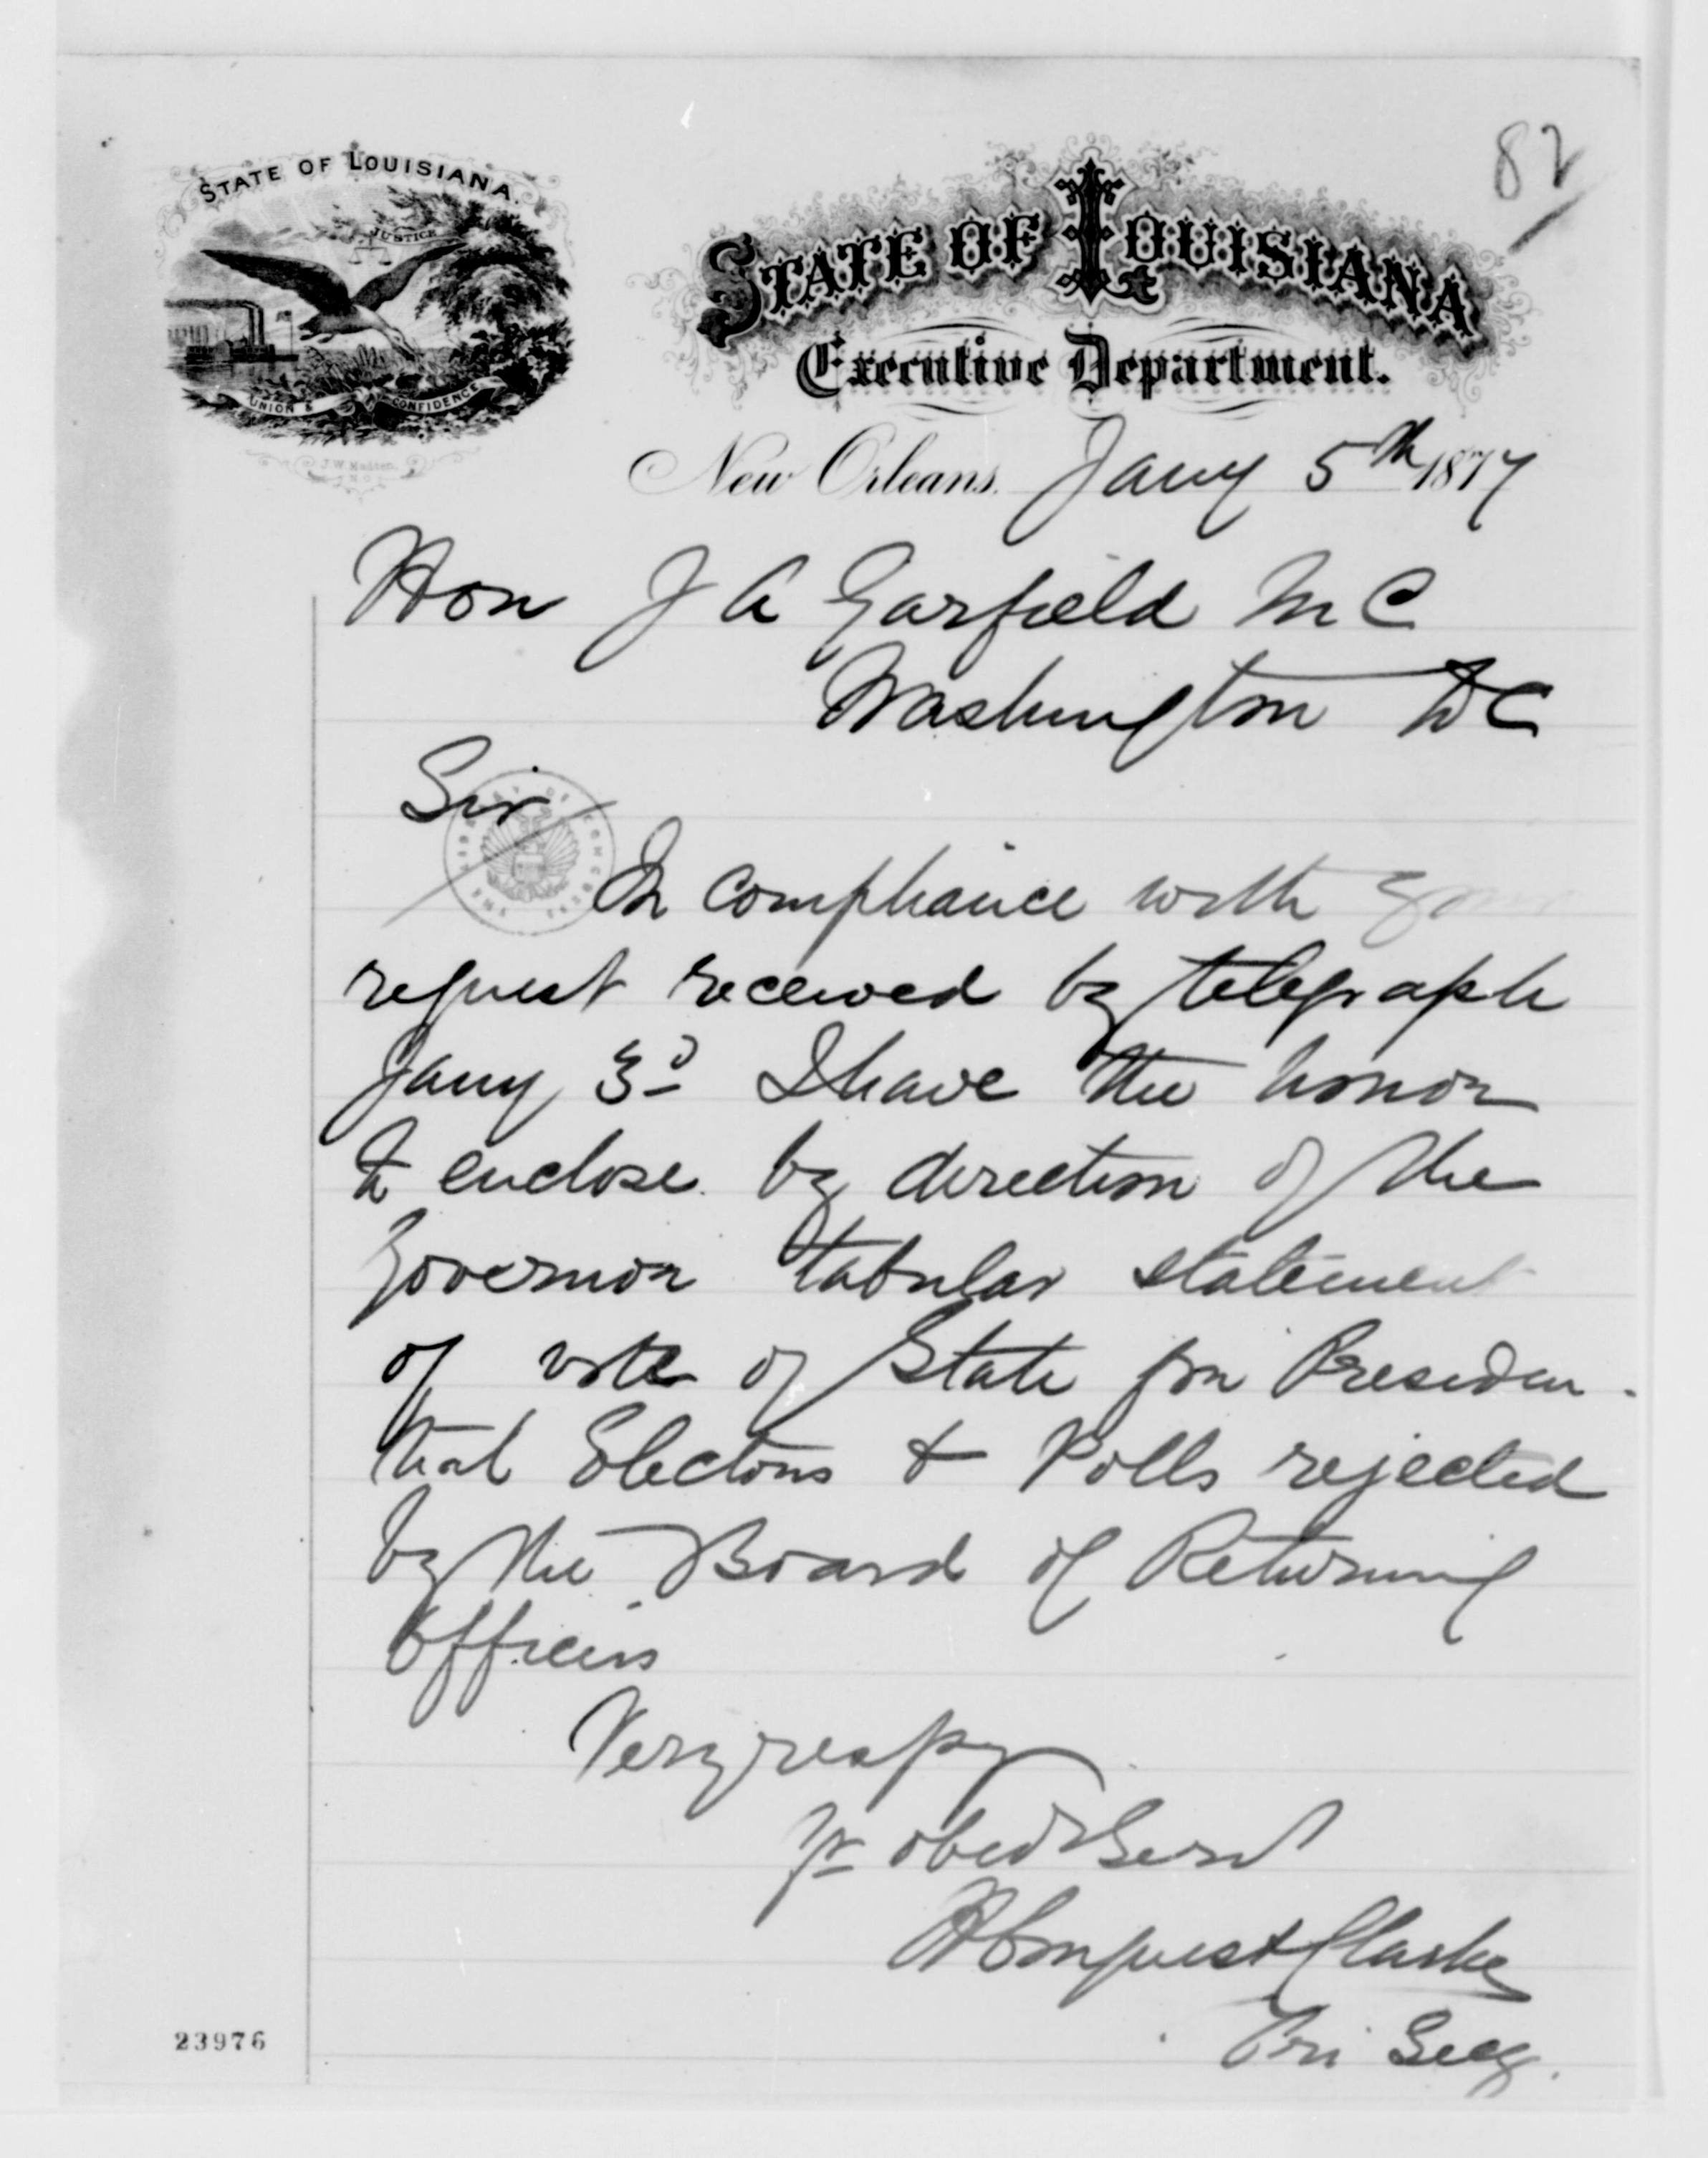 82
STATE OF LOUISIANA.
JUSTICE
UNION & CONFIDENCE
J.W. Madden.
STATE OF LOUISIANA
Executive Department.
New Orleans, Jany 5th 1877
Hon J A Garfield M C
Washington DC
Sir
In compliance with your
request received by telegraph
Jany 3d I have the honor
to enclose by direction of the
Governor tabular statement
of vote of State for Presiden-
tial Electors & Polls rejected
by the Board of Returning
Officers
Very respy
Yr obed Servt
H Conquest Clarke
Pri Secy.
23976